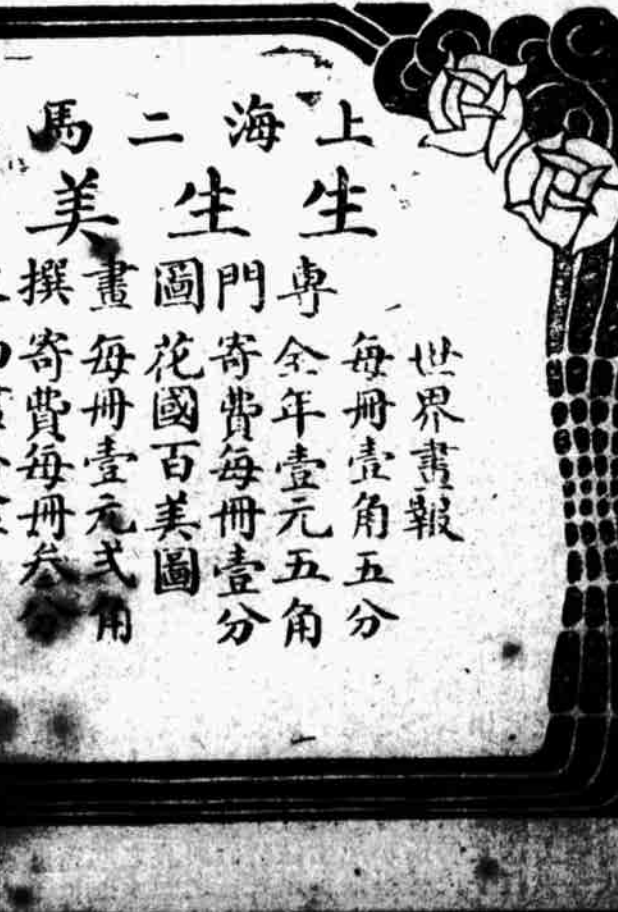 上海二馬
生生美
專門圖畫撰
世界畫報
每冊壹角五分
全年壹元五角
寄費每冊壹分
花國百美圖
每冊壹元弍角
寄費每冊叁分